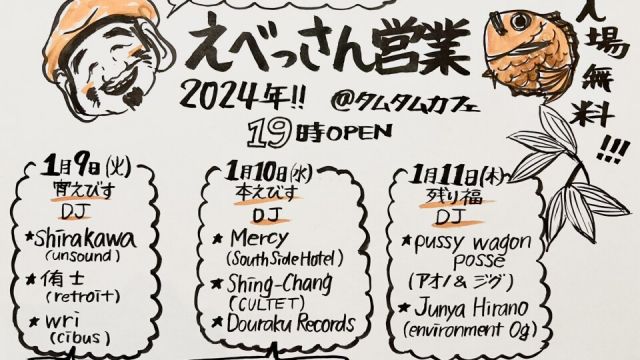 えべっさん営業
入場無料!!!
2024年!! @タムタムカフェ
19時OPEN
1月9日(火)
宵えびす
DJ
★Shirakawa
(unsound)
★侑士
(retro1t)
★wri
(cibus)
1月10日(水)
本えびす
DJ
★Mercy
(South Side Hotel)
★Shing-Chang
(CULTET)
★Douraku Records
1月11日(木)
残り福
DJ
★pussy wagon
posse
(アオノ&ジグ)
★Junya Hirano
(environment Og)